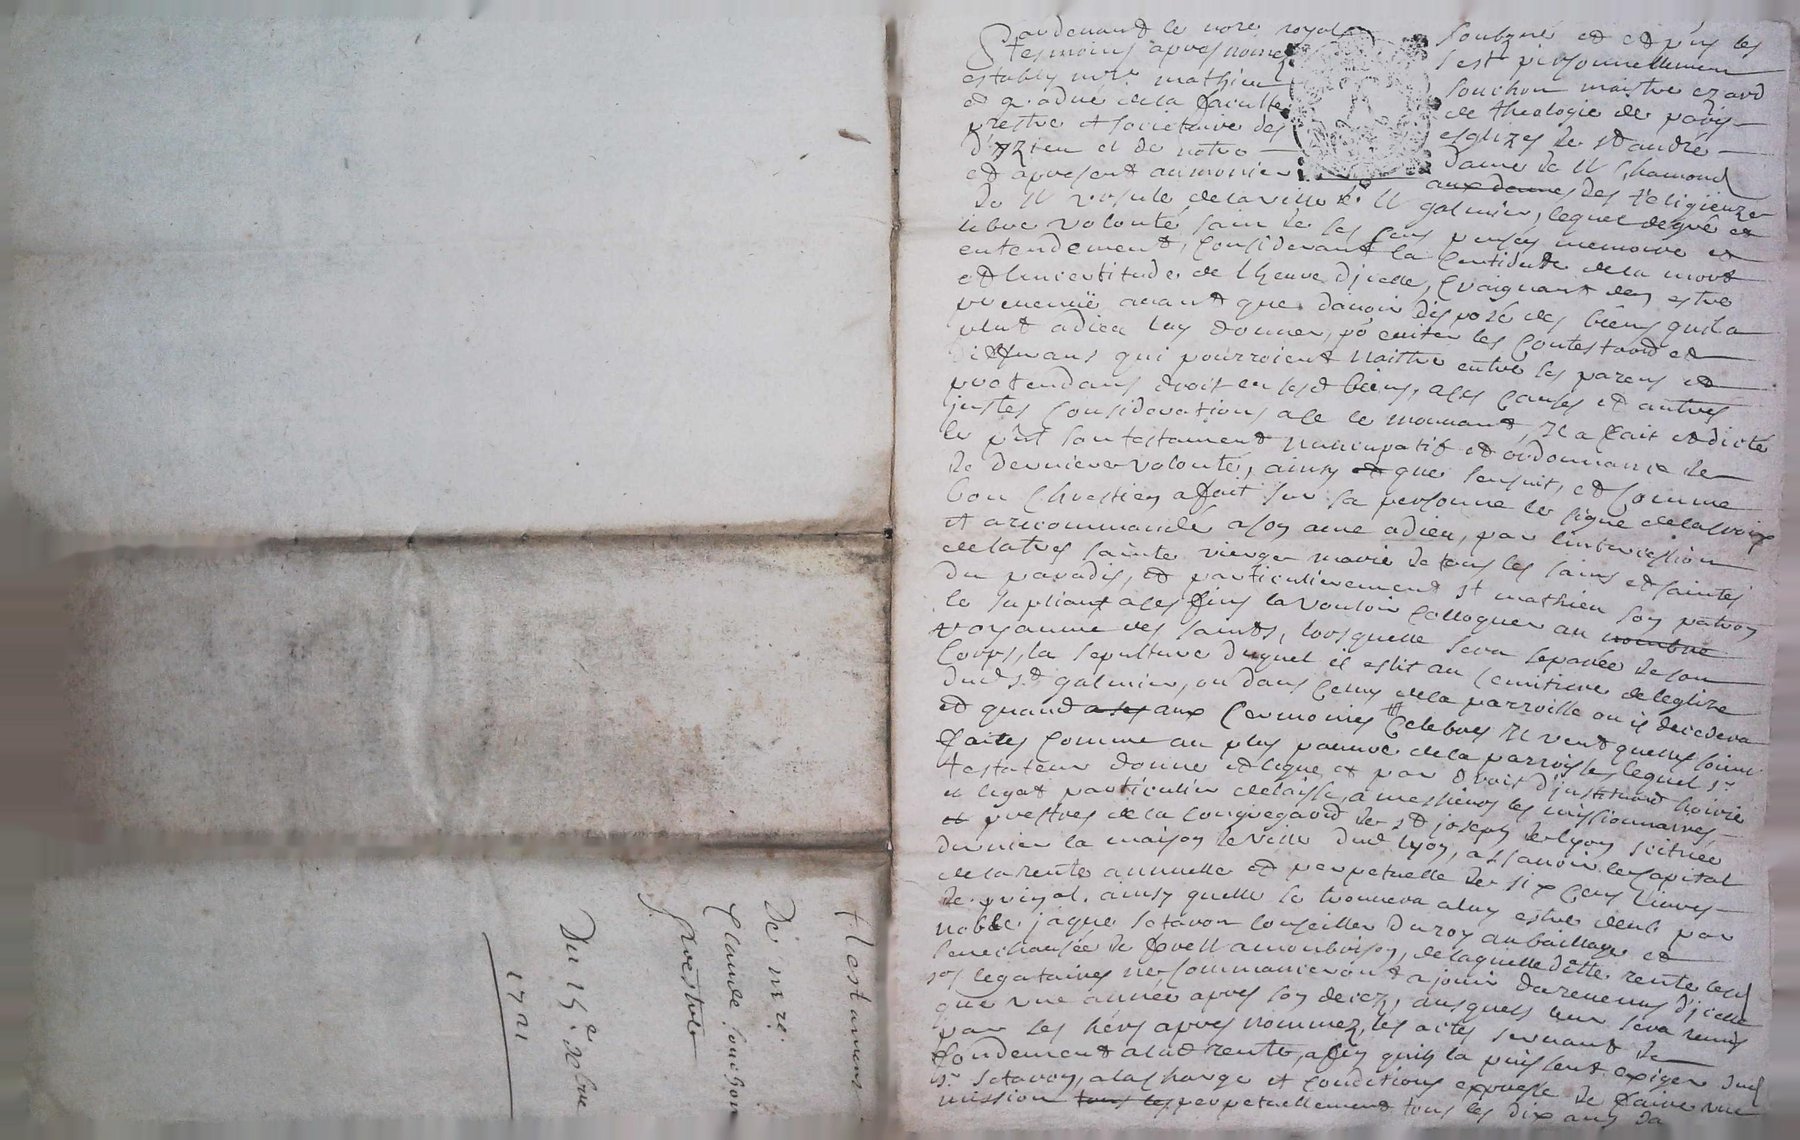 Testament
De mre.
Claude Souchon
prestre
Du 15e xbre
1721
Pardevant le nore royal soubzné et et pns les
tesmoins apres nomez s'est personnellemen
estably mre mathieu Souchon maistre ez ard
et gradué de la faculte de theologie de paris
prestre et societaire des eglizes de st andré
d'Yzieu et de notre dame de st Chamond
et apresent aumonier aux dames des religieuze
de st ursule de la ville de st galmier, lequel de gré et
libre volonté sain de ses sens pensés memoire et
entendement, considerant la certitude de la mort
et l'incertitude de l'heure d'icelle, craignant den estre
prevenu avant que davoir disposé des biens quil a
plut a dieu luy donner, po eviter les contestaond et
differans qui pourroient naistre entre les parens et
pretendans droit en sesd biens, a ses causes et autres
justes considerations a ce le mouvant, Il a fait et dicté
le pnt son testament nuncupatif et ordonnance de
de derniere volonté, ainsy et que sensuit, et comme
bon Chrestien a fait sur sa personne le signe de la croix
et a recommandé a son ame a dieu, par lintercession
de la tres sainte vierge marie de tous les sains et saintes
du paradis, et particulierement st mathieu son patron
le supliant a ces fins la vouloir colloquer au nombre
royaume des saincts, lorsquelle sera separée de son
corps, la sepulture duquel il eslit au cemitiere de leglize
dud st galmier, ou dans celuy de la parroisse ou il decedera
et quand a ses aux ceremonies celebres Il veut quelles soient
faites comme au plus pauvre de la parroisse, lequel sr
testateur donne et legue et par droit d'institaond hoirie
et legat particulier delaisse, a messieurs les missionnaires
et prestres de la congregaond de st joseph de lyon scituée
derrier la maison de ville dud lyon, assavoir le capital
de la rente annuelle et perpetuelle de six cens livres
de prinpal, ainsy quelle se trouvera a luy estre deub par
noble jaque Setavon conseiller du roy au bailliage et
senechaussée de forest a montbrison, de laquelle ditte rente lesd
srs legataires ne commanceront a jouir du revenus d'icelle
que une année apres son decez, ausquels leur sera remis
par les hers apres nommez, les actes servant de
fondement a lad rente, afin quils la puissent exiger dud
sr Setavon, a la charge et conditions expresse de faire une
mission tous les perpetuellement tous les dix ans da